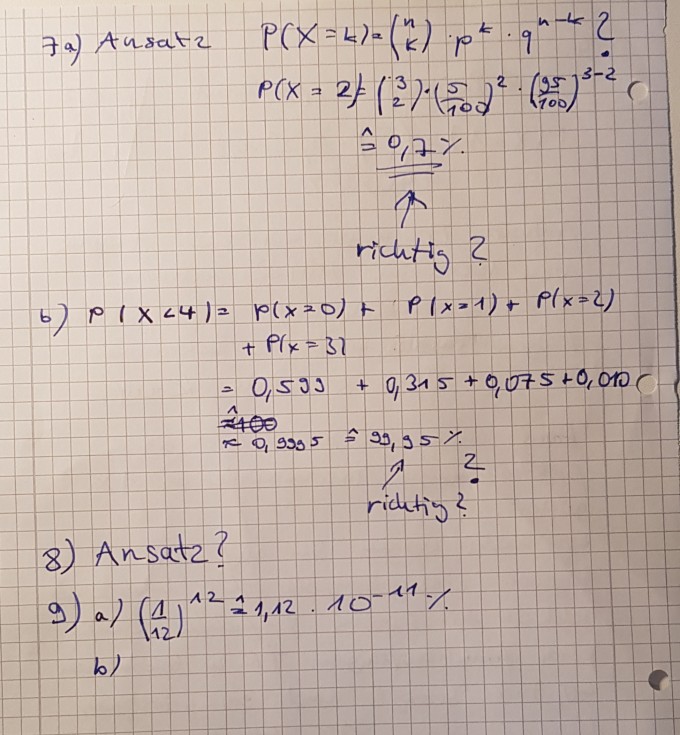 7a) Ansatz P(X=k)=(n k)·p^k·q^n-k ?
P(X=2)=(3 2)·(5/100)^2·(95/100)^3-2
≙ 0,7%
richtig ?
b) P(X<4)= P(X=0) + P(X=1) + P(X=2)
+ P(X=3)
= 0,599 + 0,315 + 0,075 + 0,010
≈ 0,9995 ≙ 99,95%
richtig ?
?
8) Ansatz?
9) a) (1/12)^12 ≙ 1,12 · 10^-11 %
b)